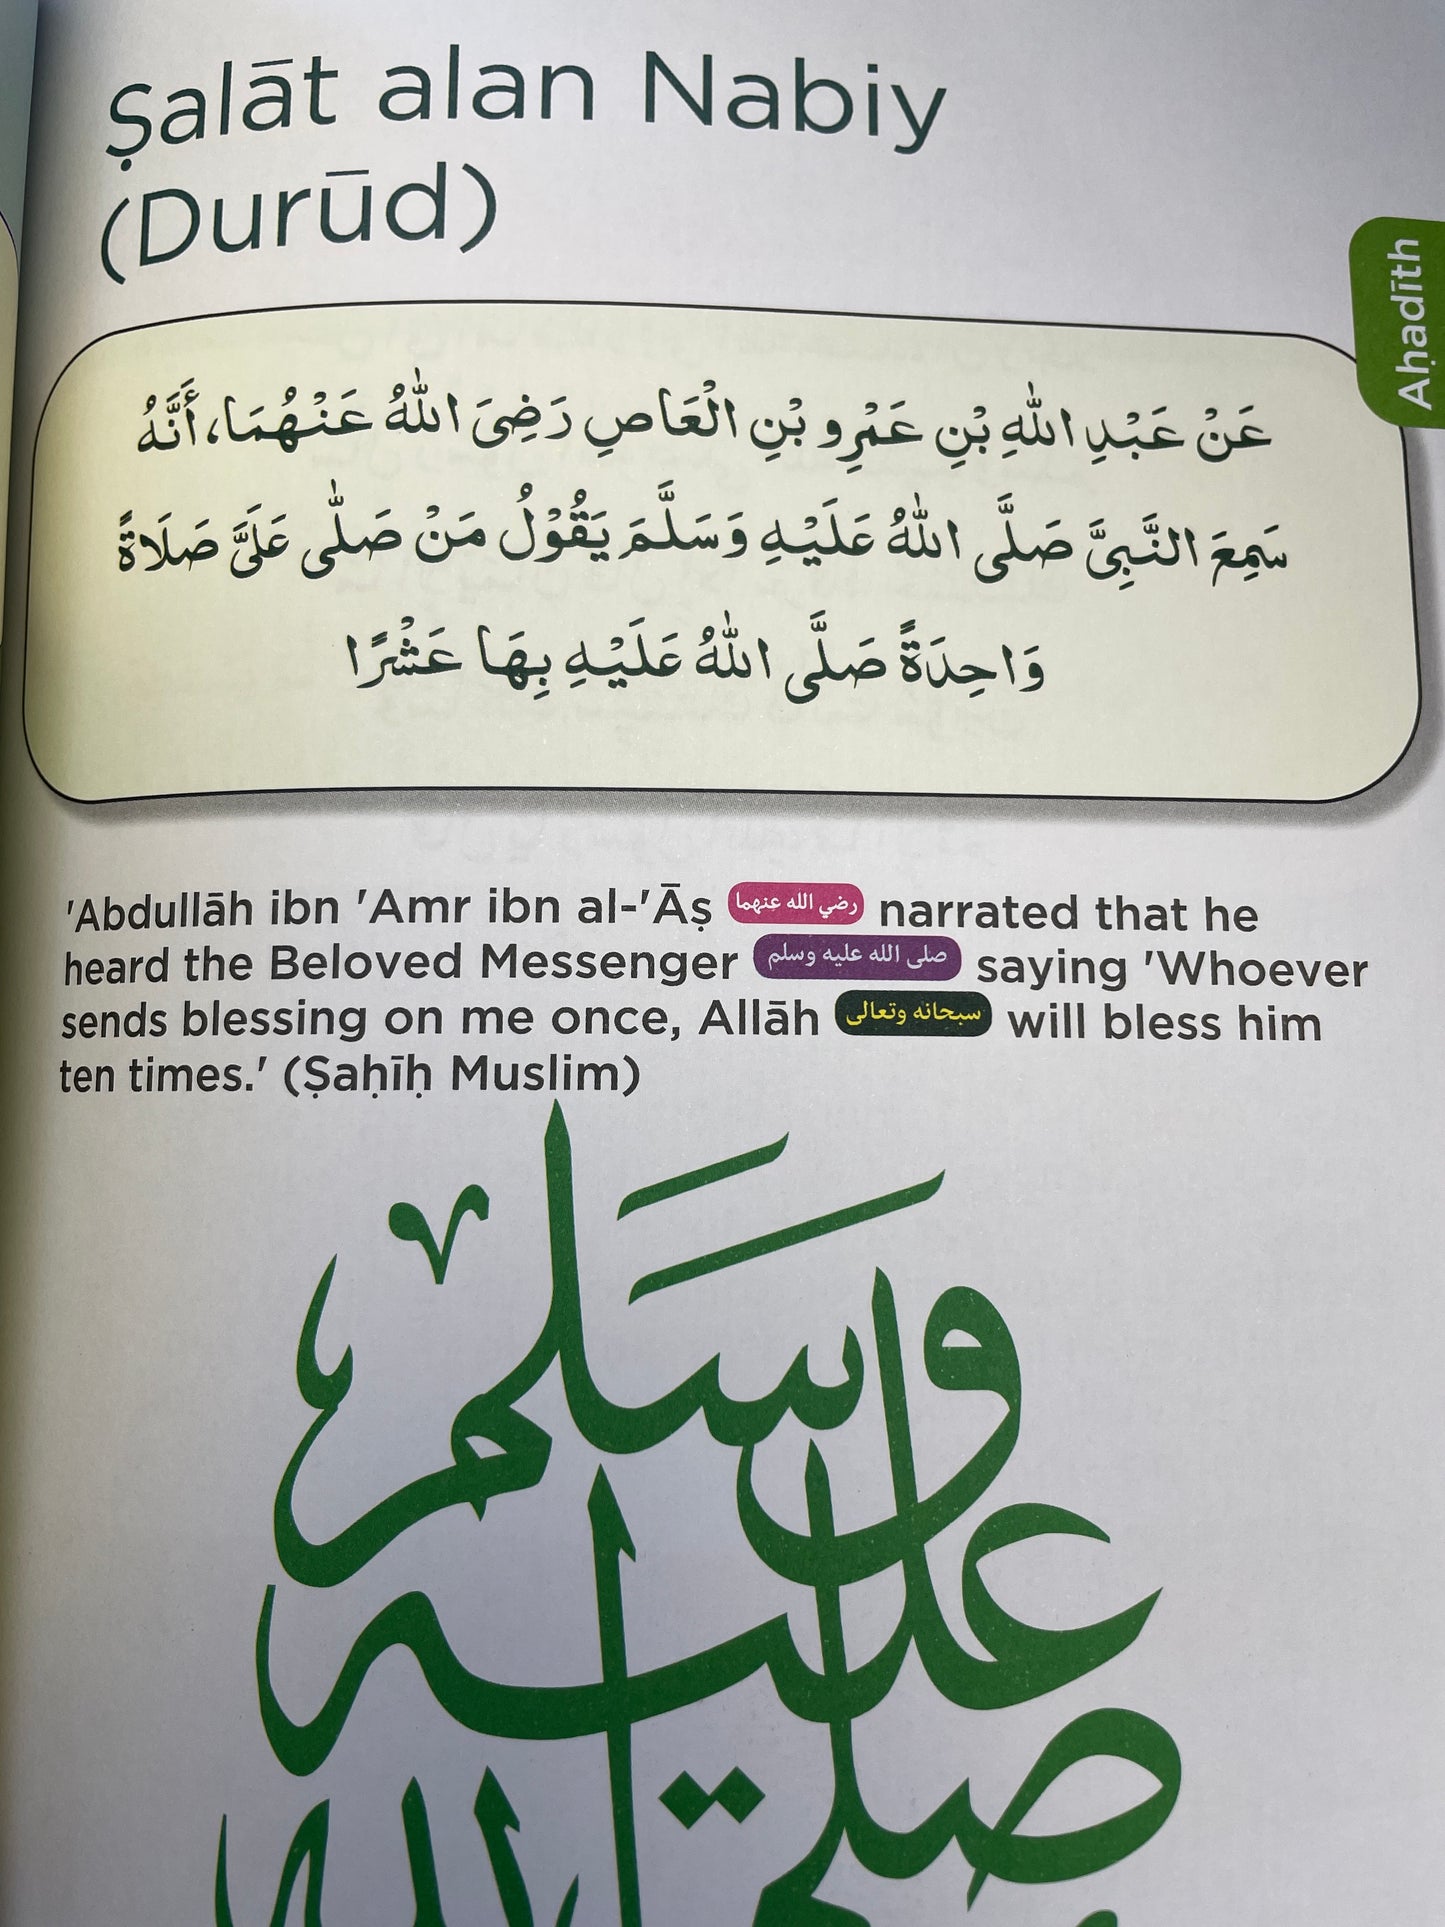 Ṣalāt alan Nabiy
(Durūd)
Aḥadīth
عَنْ عَبْدِ اللّٰهِ بْنِ عَمْرِو بْنِ الْعَاصِ رَضِىَ اللّٰهُ عَنْهُمَا، أَنَّهُ
سَمِعَ النَّبِىَّ صَلَّى اللّٰهُ عَلَيْهِ وَسَلَّمَ يَقُوْلُ مَنْ صَلّٰى عَلَىَّ صَلَاةً
وَاحِدَةً صَلَّى اللّٰهُ عَلَيْهِ بِهَا عَشْرًا
'Abdullāh ibn 'Amr ibn al-'Āṣ رضي الله عنهما narrated that he
heard the Beloved Messenger صلى الله عليه وسلم saying 'Whoever
sends blessing on me once, Allāh سبحانه وتعالى will bless him
ten times.' (Ṣaḥīḥ Muslim)
وسلم
عليه
صلى الله